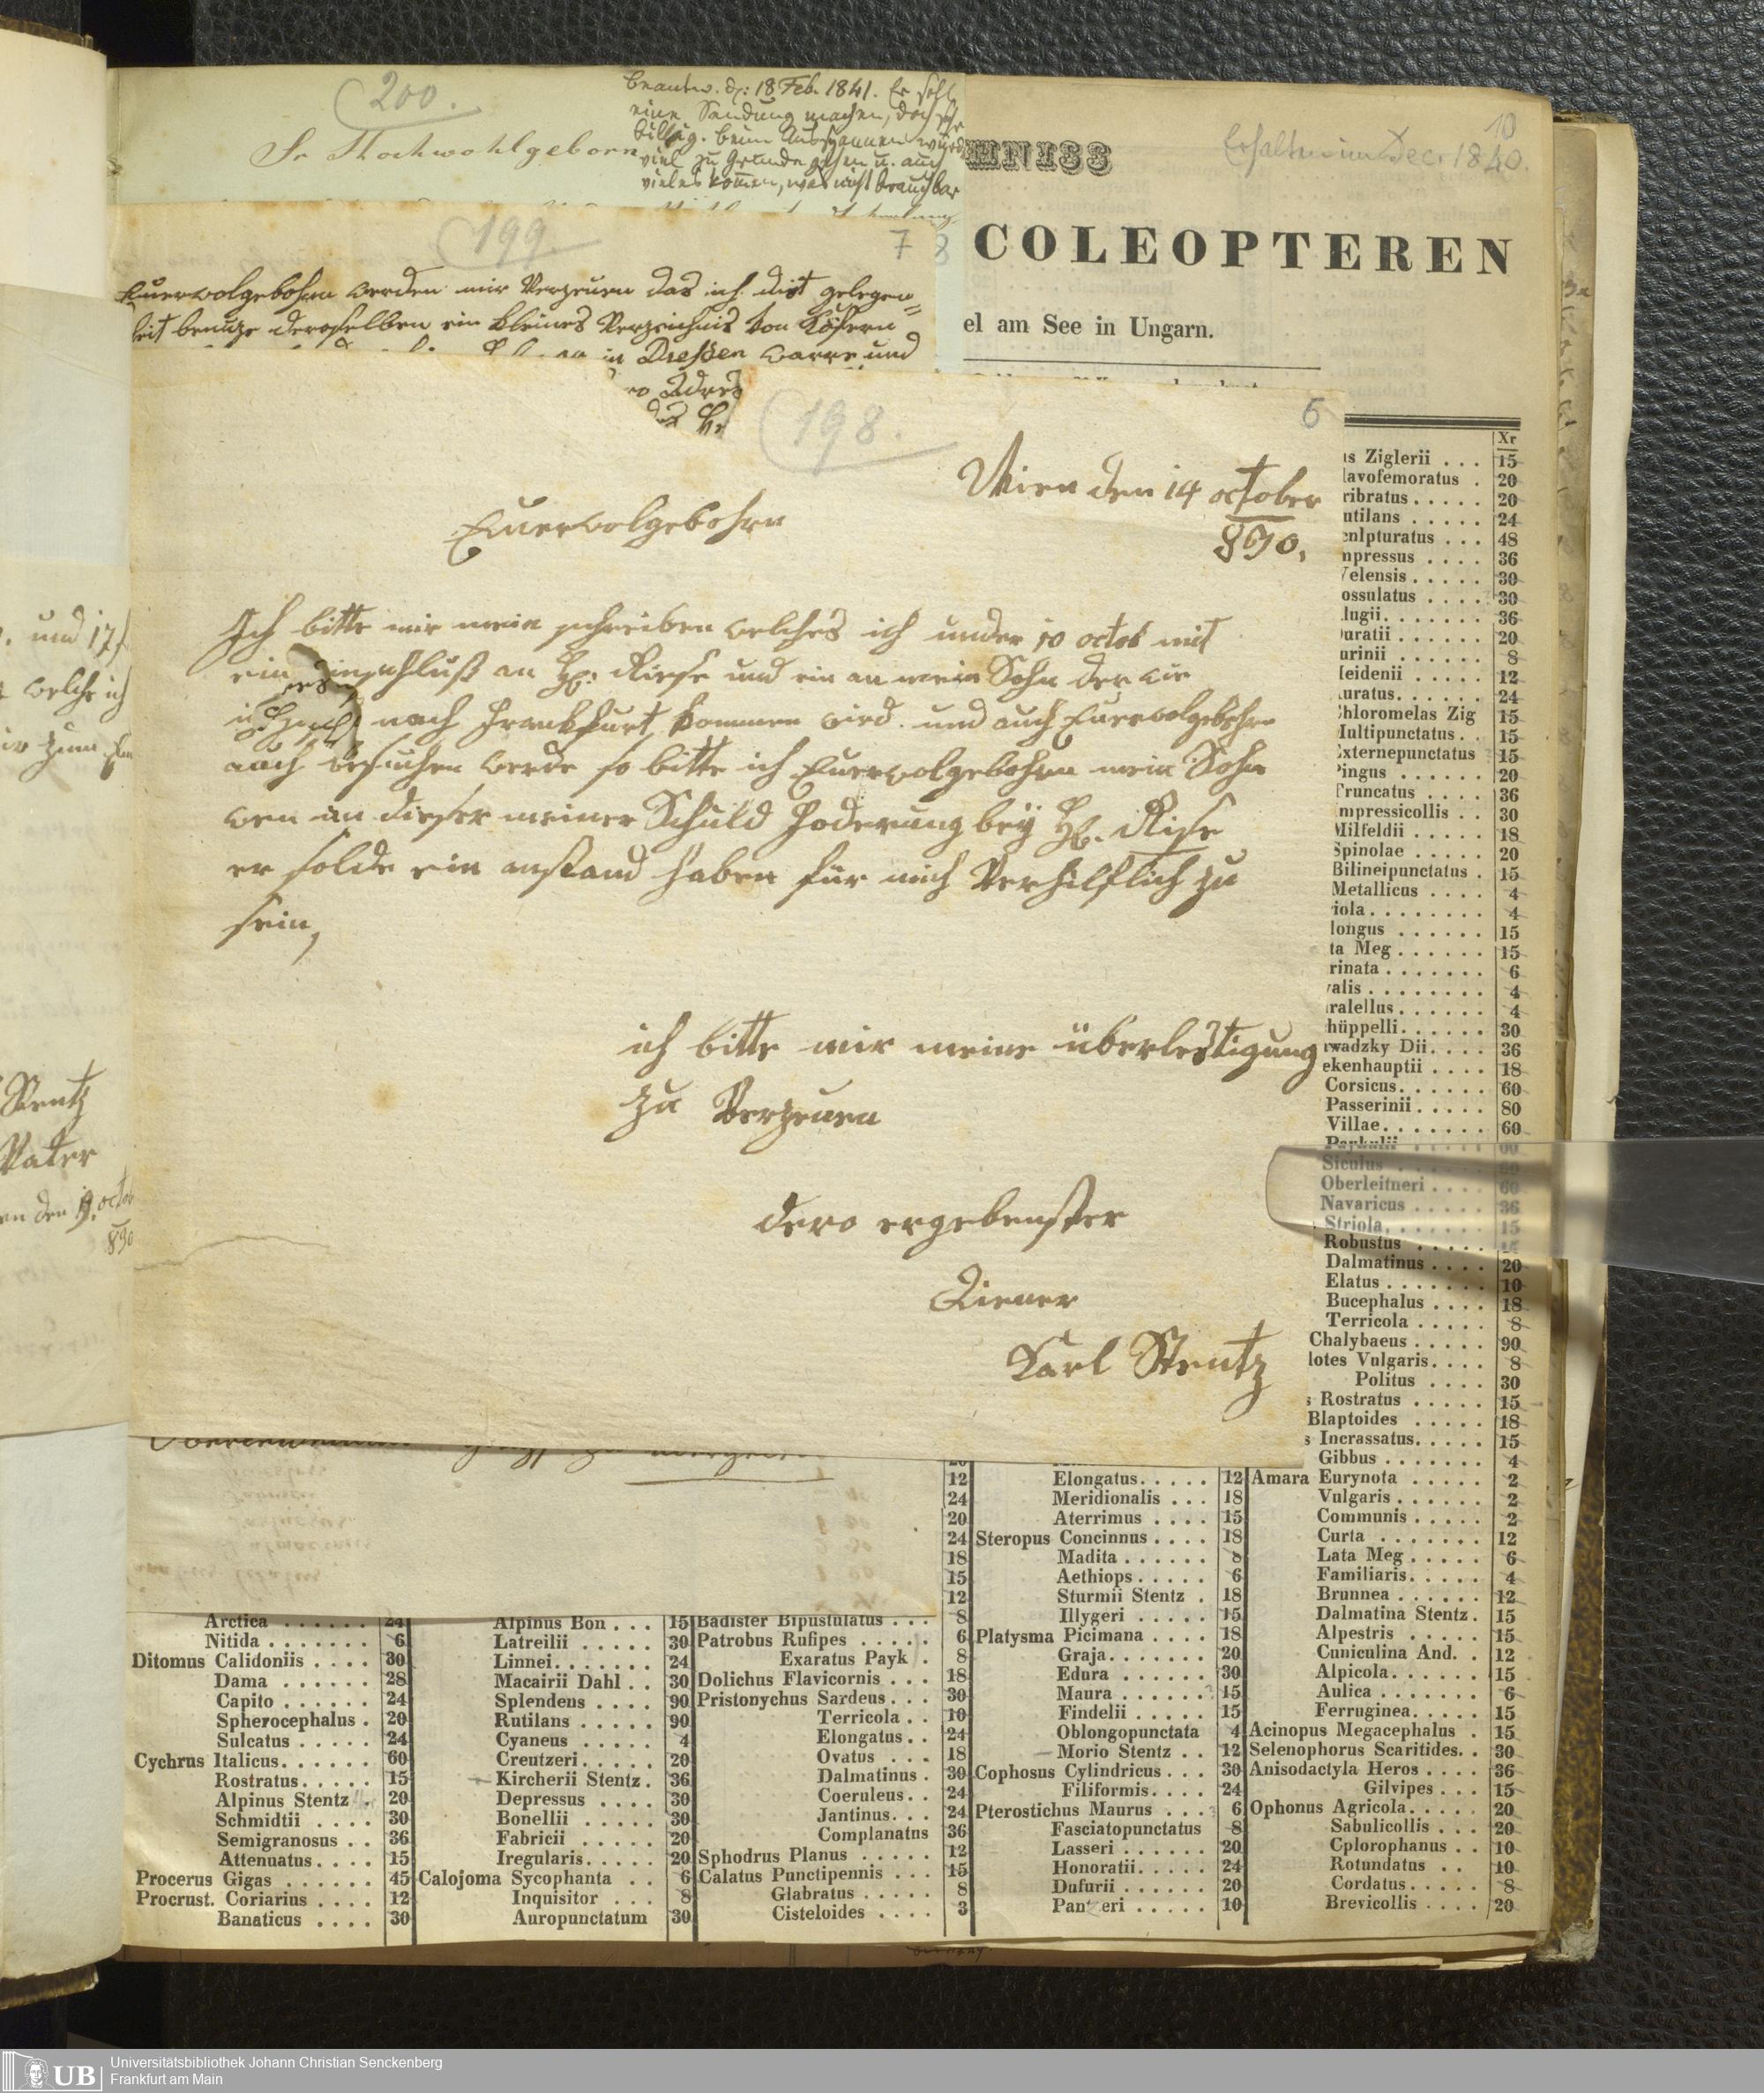 200.
beantw. d: 18 Feb. 1841. Er soll
eine Sendung machen, doch sehr
billig. beim Ausspannen würde
viel zu Grunde gehen u. auch
vieles kommen, was nicht brauchbar
Sr Hochwohlgeborn
MNISS
10
Erhalten im Dec. 1840.
COLEOPTEREN
el am See in Ungarn.
199.
7
8
Euerwolgebohrn werden mir Verzeuen das ich dist gelegen=
heit benuze deroselben ein kleines Verzeichnis von Köfern
in Dresden warre und
ro Adres
des H
198.
6
Wien den 14 october
890.
Euerwolgebohrn
Ich bitte mir mein schreiben welches ich under 10 octob mit
ein einschluß an H: Riese und ein an mein Sohn der wie
ich nach Frankfurt kommen wird. und auch Euerwolgebohrn
auch besuchen werde so bitte ich Euerwolgebohrn mein Sohn
wen an dieser meiner Schuld Foderung beÿ H. Rise
er solde ein anstand haben für mich Verhilflich zu
sein,
ich bitte mir meine überlestigung
zu Verzeuen
dero ergebenster
Diener
Karl Stentz
. und 17
welche ich
ir zum
Stentz
Vater
en den 9. octob
890
Xr
s Ziglerii . . . 15
lavofemoratus . 20
ribratus . . . . . 20
utilans . . . . . 24
enlpturatus . . . 48
mpressus . . . . 36
elensis . . . . . 30
ossulatus . . . . 30
lugii . . . . . . 36
uratii . . . . . . 20
urinii . . . . . . 8
leidenii . . . . . 12
uratus . . . . . . 24
hloromelas Zig 15
Multipunctatus . . 15
xternepunctatus 15
ingus . . . . . . 20
Truncatus . . . . 36
mpressicollis . . 30
Milfeldii . . . . . 18
Spinolae . . . . . 20
Bilineipunctatus . 15
Metallicus . . . . 4
iola . . . . . . . . 4
longus . . . . . . 15
ta Meg . . . . . . 15
rinata . . . . . . . 6
alis . . . . . . . . 4
ralellus . . . . . . 4
hüppelli . . . . . . 30
rwadzky Dii . . . . 36
ekenhauptii . . . . 18
Corsicus . . . . . . 60
Passerinii . . . . . 80
Villae . . . . . . . 60
Siculus
Oberleitneri . . . . 60
Navaricus . . . . . 36
Striola . . . . . . 15
Robustus
Dalmatinus . . . . 20
Elatus . . . . . . . 10
Bucephalus . . . . 18
Terricola . . . . . 8
Chalybaeus . . . . . 90
lotes Vulgaris . . . . 8
Politus . . . . 30
Rostratus . . . . . 15
Blaptoides . . . . . 18
s Incrassatus . . . . . 15
Gibbus . . . . . . . 4
Arctica . . . . . . 24
Nitida . . . . . . . 6
Ditomus Calidoniis . . . . 30
Dama . . . . . . 28
Capito . . . . . . 24
Spherocephalus . 20
Sulcatus . . . . . 24
Cychrus Italicus . . . . . . 60
Rostratus . . . . . 15
Alpinus Stentz 20
Schmidtii . . . . 30
Semigranosus . . 36
Attenuatus . . . . 15
Procerus Gigas . . . . . . 45
Procrust. Coriarius . . . . 12
Banaticus . . . . 30
Alpinus Bon . . . 15
Latreilii . . . . . 30
Linnei . . . . . . . 24
Macairii Dahl . . 30
Splendens . . . . 90
Rutilans . . . . . 90
Cyaneus . . . . . 4
Creutzeri . . . . . 20
Kircherii Stentz . 36
Depressus . . . . 30
Bonellii . . . . . 30
Fabricii . . . . . 20
Iregularis . . . . . 20
Calojoma Sycophanta . . 6
Inquisitor . . . 8
Auropunctatum 30
Badister Bipustulatus . . . 8
Patrobus Rufipes . . . . . 6
Exaratus Payk . 8
Dolichus Flavicornis . . . 18
Pristonychus Sardeus . . . 30
Terricola . . 10
Elongatus . . 24
Ovatus . . . 18
Dalmatinus . 30
Coeruleus . . 24
Jantinus . . . 24
Complanatus 36
Sphodrus Planus . . . . . 12
Calatus Punctipennis . . . 15
Glabratus . . . . . 8
Cisteloides . . . . 3
12
24
20
24
18
15
12
Elongatus . . . . . 12
Meridionalis . . . 18
Aterrimus . . . . 15
Steropus Concinnus . . . . 18
Madita . . . . . . 8
Aethiops . . . . . 6
Sturmii Stentz . 18
Illygeri . . . . . 15
Platysma Picimana . . . . 18
Graja . . . . . . . 20
Edura . . . . . . 30
Maura . . . . . . 15
Findelii . . . . . 15
Oblongopunctata 4
Morio Stentz . . 12
Cophosus Cylindricus . . . 30
Filiformis . . . . 24
Pterostichus Maurus . . . 6
Fasciatopunctatus 8
Lasseri . . . . . . 20
Honoratii . . . . . 24
Dufurii . . . . . . 20
Panzeri . . . . . 10
Amara Eurynota . . . . . 2
Vulgaris . . . . . . 2
Communis . . . . . 2
Curta . . . . . . . 12
Lata Meg . . . . . 6
Familiaris . . . . . 4
Brunnea . . . . . . 12
Dalmatina Stentz . 15
Alpestris . . . . . 15
Cuniculina And. . 12
Alpicola . . . . . . 15
Aulica . . . . . . . 6
Ferruginea . . . . . 15
Acinopus Megacephalus . 15
Selenophorus Scaritides . . 30
Anisodactyla Heros . . . . 36
Gilvipes . . . 15
Ophonus Agricola . . . . . 20
Sabulicollis . . . 20
Cplorophanus . . 10
Rotundatus . . 10
Cordatus . . . . . 8
Brevicollis . . . . 20
UB
Universitätsbibliothek Johann Christian Senckenberg
Frankfurt am Main